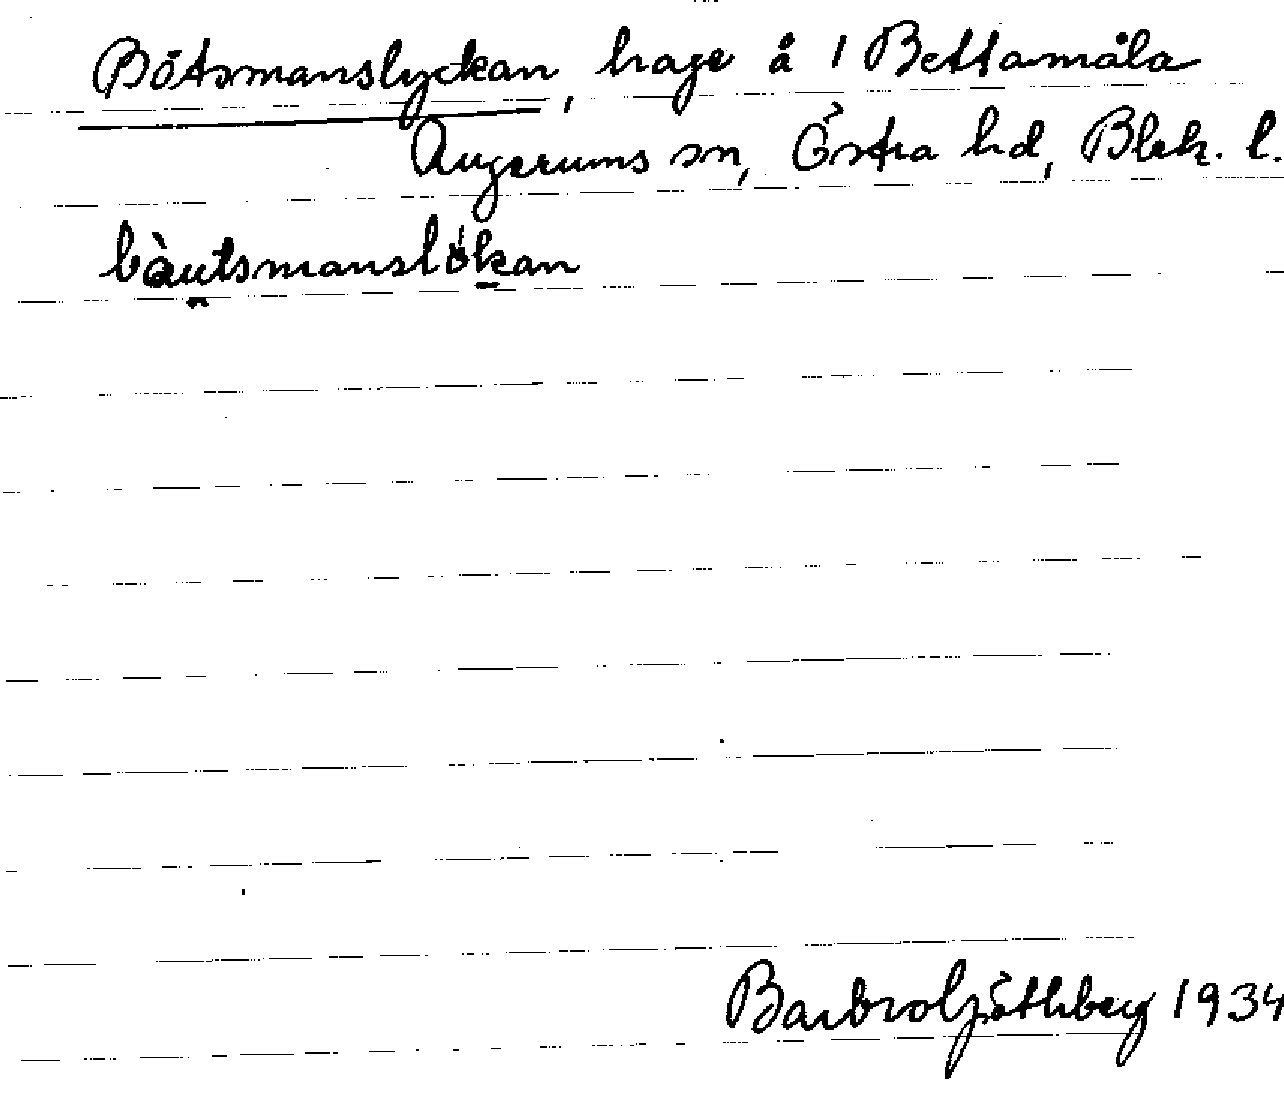 Båtsmanslyckan, hage å 1 Bettamåla
Augerums sn, Östra hd, Blek. l.
bàu̯tsmanslö́kan
Barbro Göthberg 1934